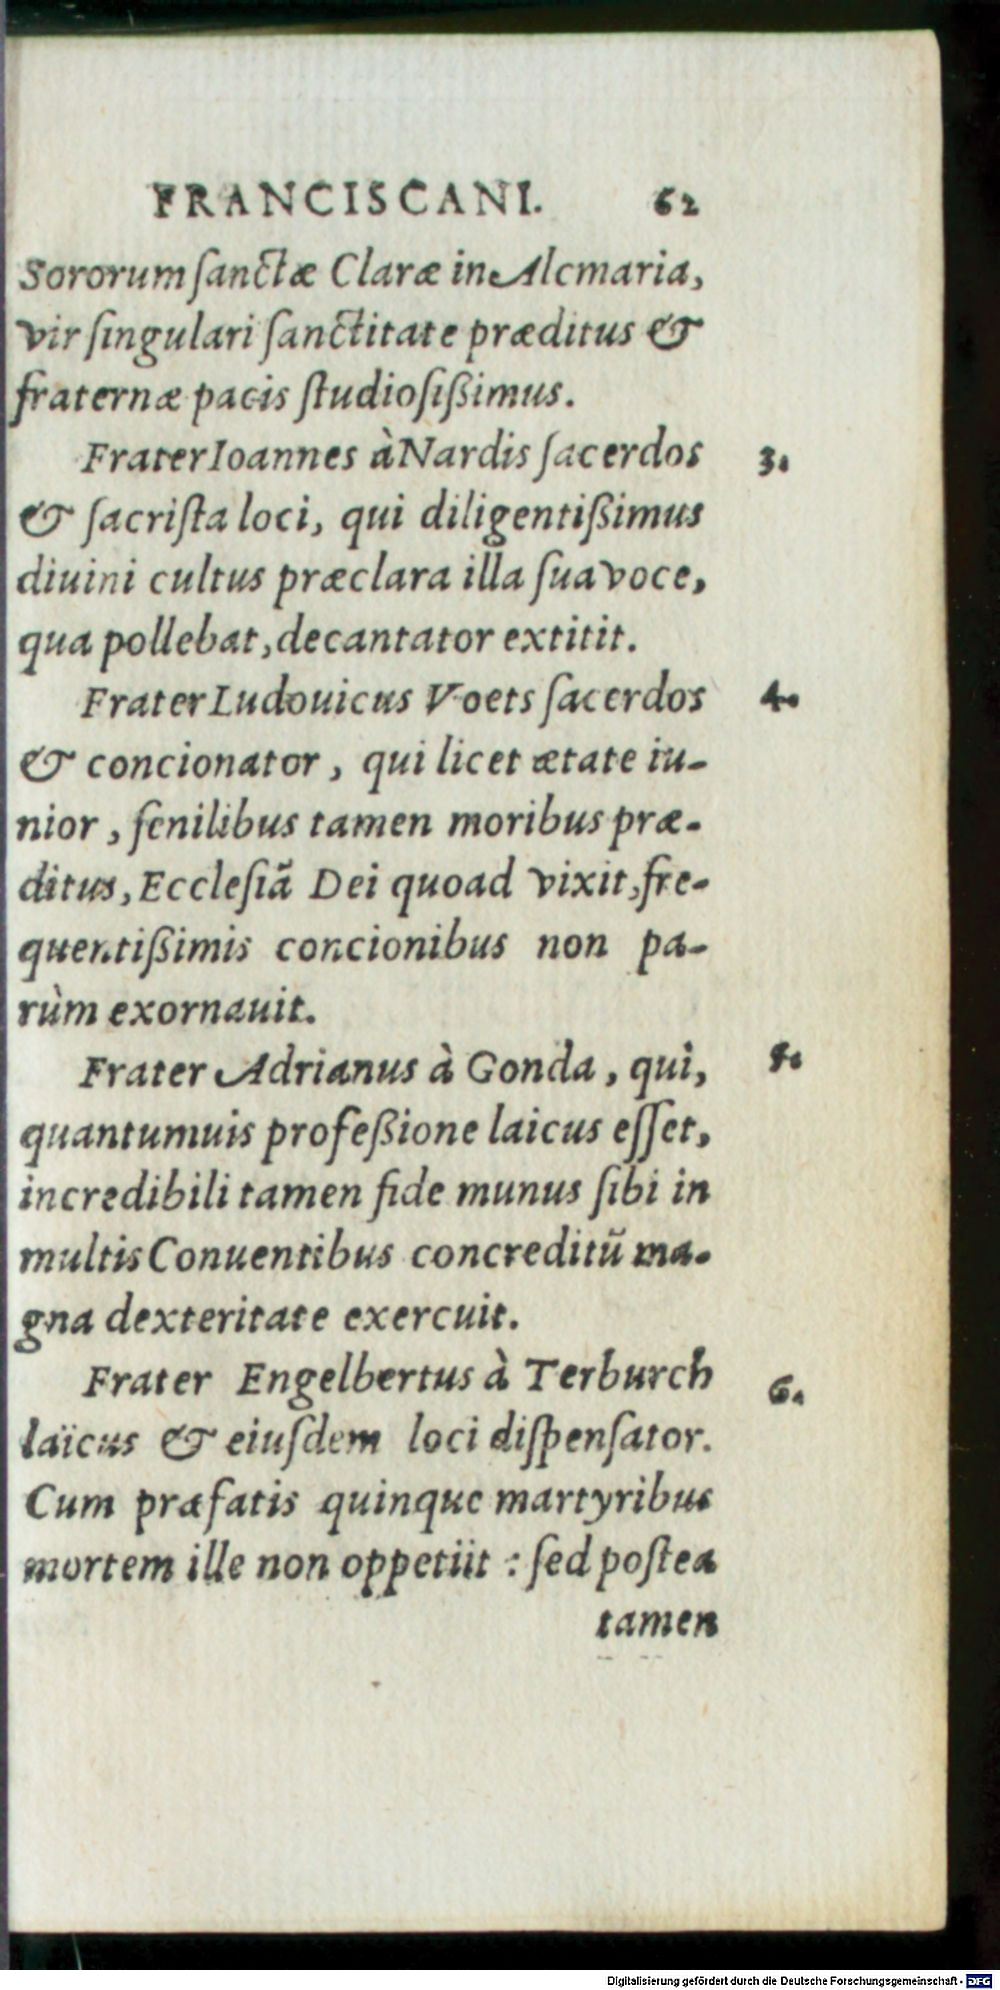 FRANCISCANI. 62
Sororum ſanctæ Claræ in Alcmaria,
vir ſingulari ſanctitate præditus &
fraternæ pacis ſtudioſißimus.
Frater Ioannes à Nardis ſacerdos 3.
& ſacriſta loci, qui diligentißimus
diuini cultus præclara illa ſua voce,
qua pollebat, decantator extitit.
Frater Ludouicus Voets ſacerdos 4.
& concionator, qui licet ætate iu-
nior, ſenilibus tamen moribus præ-
ditus, Eccleſiã Dei quoad vixit, fre-
quentißimis concionibus non pa-
rùm exornauit.
Frater Adrianus à Gonda, qui, 5.
quantumuis profeßione laicus eſſet,
incredibili tamen fide munus ſibi in
multis Conuentibus concreditũ ma-
gna dexteritate exercuit.
Frater Engelbertus à Terburch 6.
laïcus & eiuſdem loci diſpenſator.
Cum præfatis quinque martyribus
mortem ille non oppetiit : ſed poſtea
tamen
Digitalisierung gefördert durch die Deutsche Forschungsgemeinschaft - DFG